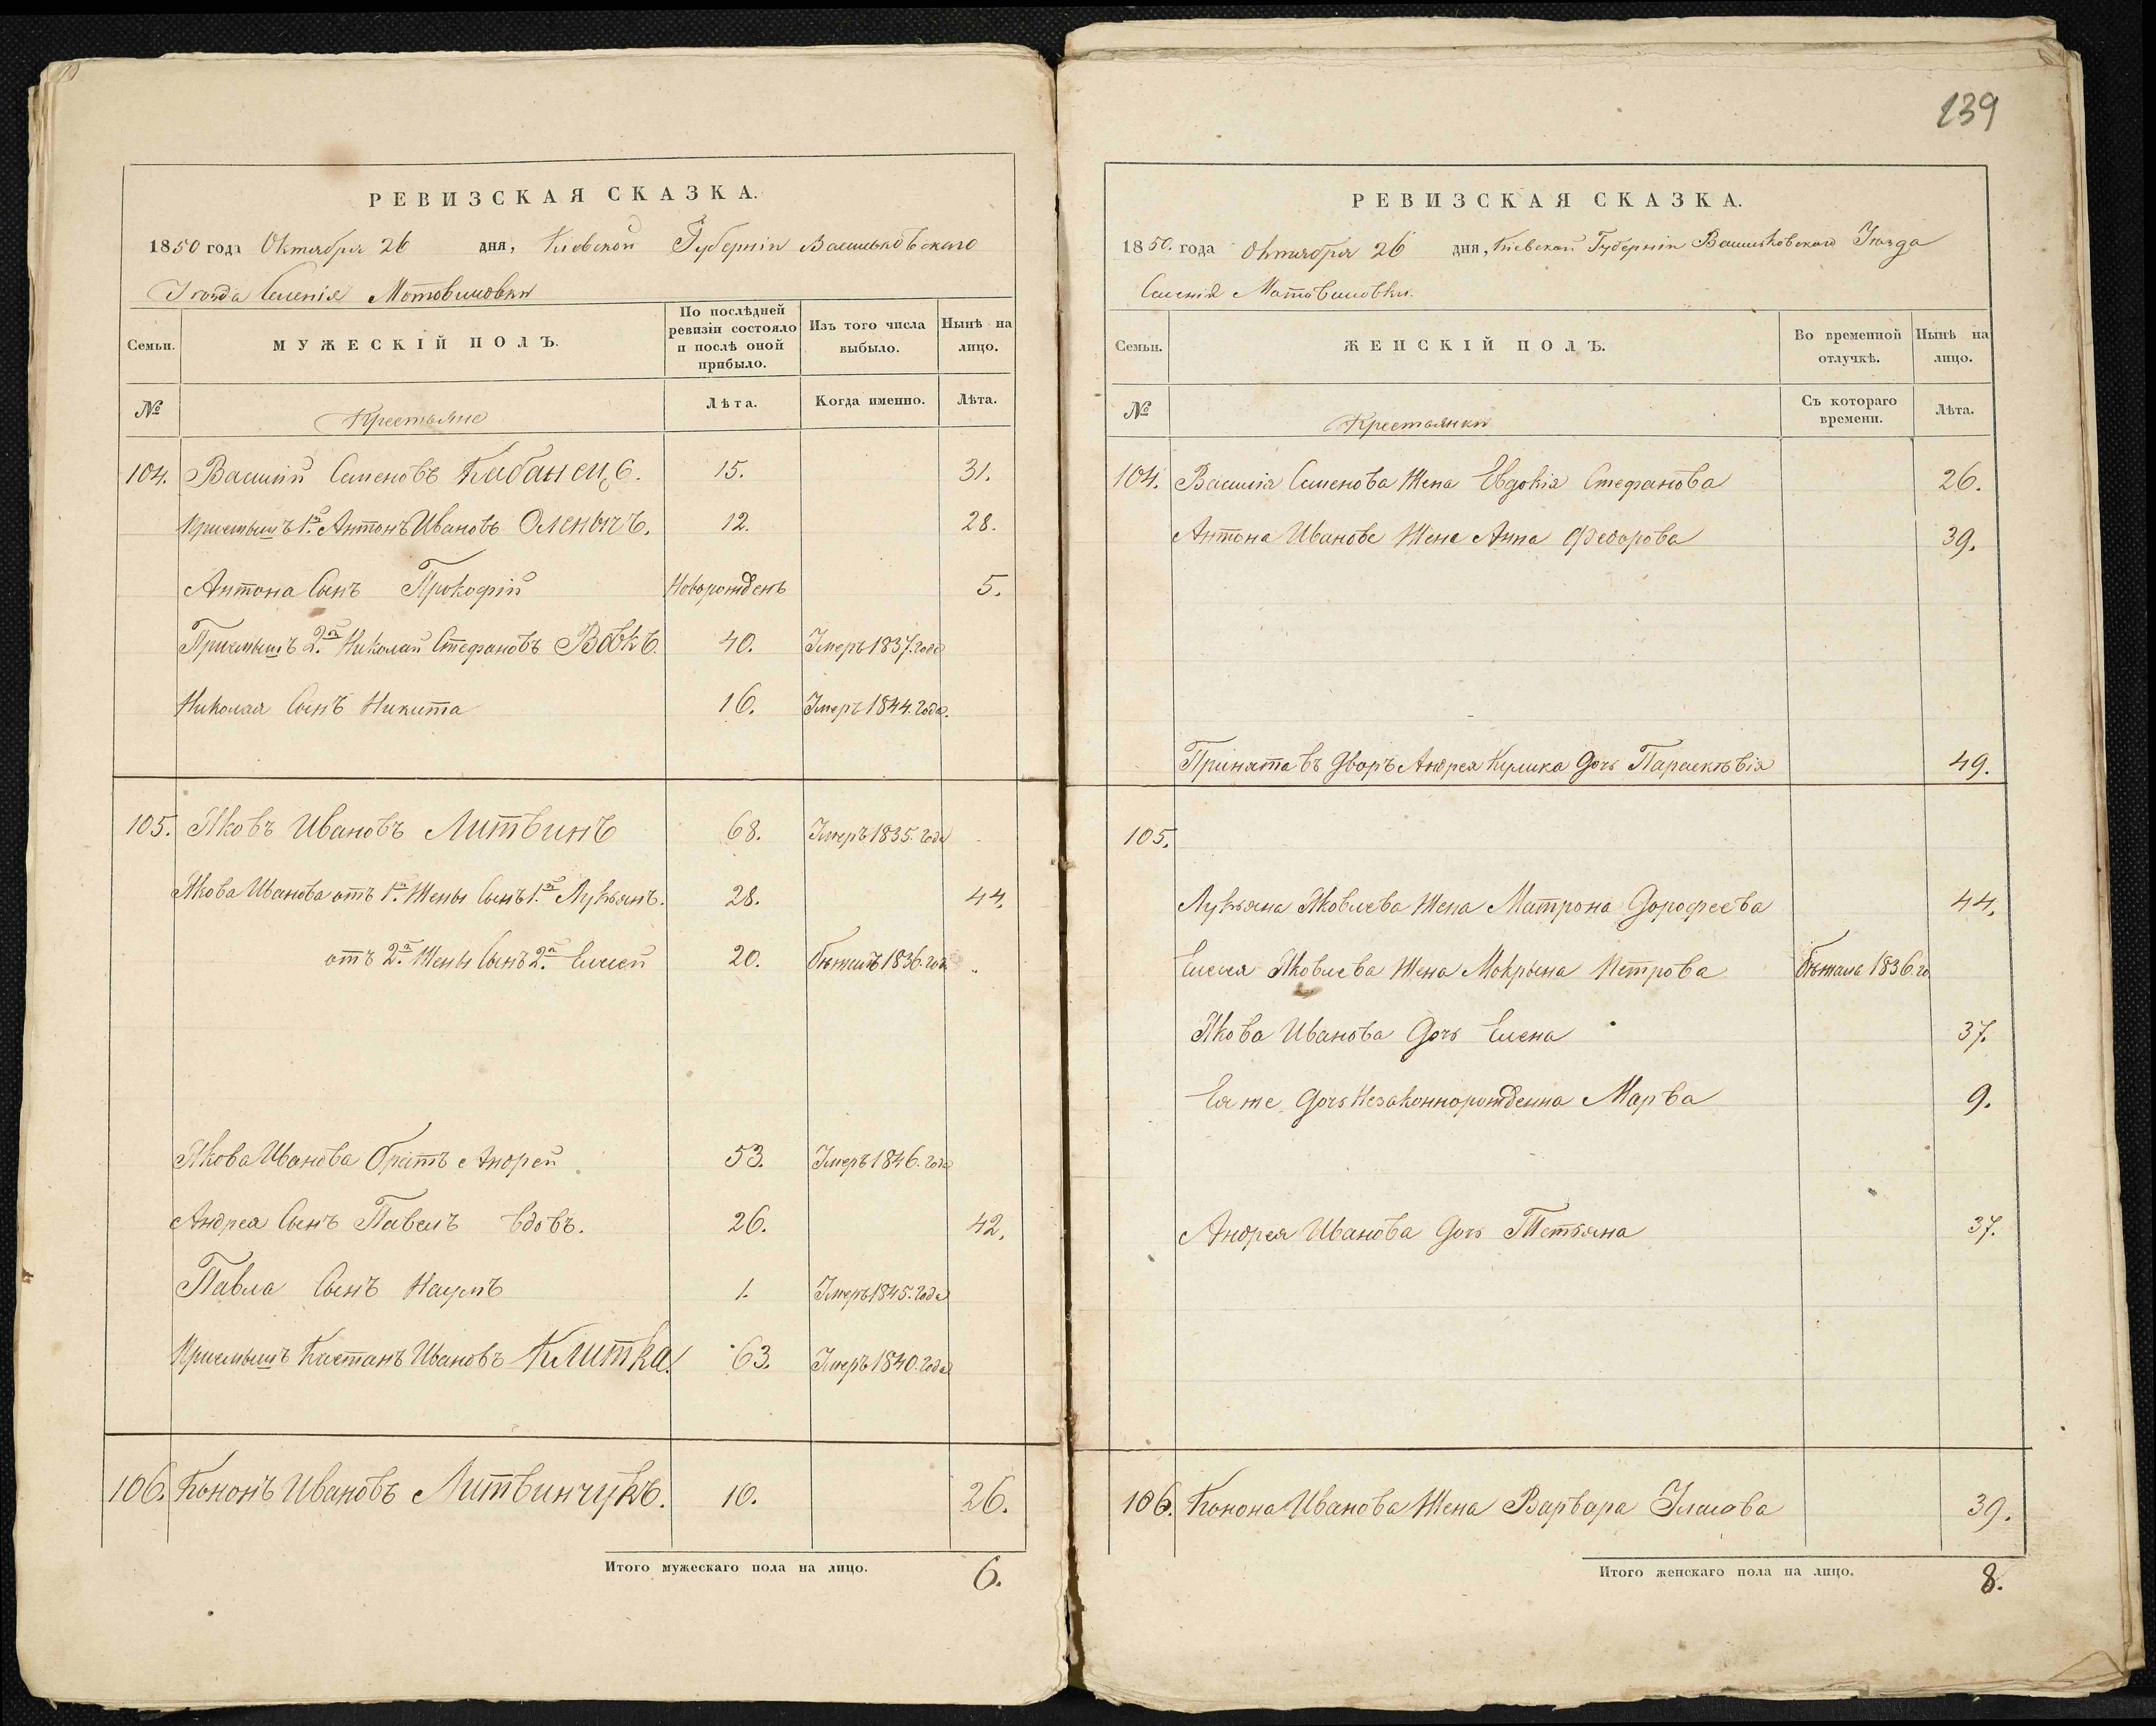 139
РЕВИЗСКАЯ СКАЗКА.
1850 года Октября 26 дня, Кіевской Губерніи Васильковскаго
Уѣзда Селенія Мотовиловки
Семьи.
МУЖЕСКІЙ ПОЛЪ.
По послѣдней ревизіи состояло и послѣ оной прибыло.
Изъ того числа выбыло.
Нынѣ на лицо.
№
Крестьяне
Лѣта.
Когда именно.
Лѣта.
104. Василий Семеновъ Кабанецъ. 15. 31.
Приемышъ 1й Антонъ Ивановъ Оленычъ. 12. 28.
Антона Сынъ Прокофій Новорожденъ 5.
Приемышъ 2й Николай Стефановъ Вовкъ. 40. Умеръ 1837. года
Николая Сынъ Никита 16. Умеръ 1844. года.
105. Яковъ Ивановъ Литвинъ 68. Умеръ 1835. года
Якова Иванова отъ 1й Жены Сынъ 1й Лукьянъ. 28. 44.
отъ 2й Жены Сынъ 2й Елисей 20. бѣжилъ 1836. года
Якова Иванова братъ Андрей 53. Умеръ 1846. года
Андрея Сынъ Павелъ вдовъ. 26. 42.
Павла Сынъ Наумъ 1. Умеръ 1845. года
Приемышъ Каетанъ Ивановъ Клитка 63. Умеръ 1840. года
106. Кононъ Ивановъ Литвинчукъ. 10. 26.
Итого мужескаго пола на лицо. 6.
РЕВИЗСКАЯ СКАЗКА.
1850. года Октября 26 дня, Кіевской Губерніи Васильковскаго Уѣзда
Селенія Мотовиловки.
Семьи.
ЖЕНСКІЙ ПОЛЪ.
Во временной отлучкѣ.
Нынѣ на лицо.
№
Крестьянки
Съ котораго времени.
Лѣта.
104. Василія Семенова Жена Евдокія Стефанова 26.
Антона Иванова Жена Анна Федорова 39.
Принята въ дворъ Андрея Кулика дочь Параскѣвія 49.
105.
Лукьяна Яковлева Жена Матрона Дорофеева 44.
Елисея Яковлева Жена Мокрына Петрова бѣжала 1836 го
Якова Иванова дочь Елена 37.
Ея же дочь Незаконнорожденна Марѳа 9.
Андрея Иванова дочь Тетьяна 37.
106. Конона Иванова Жена Варвара 39.
Итого женскаго пола на лицо. 8.